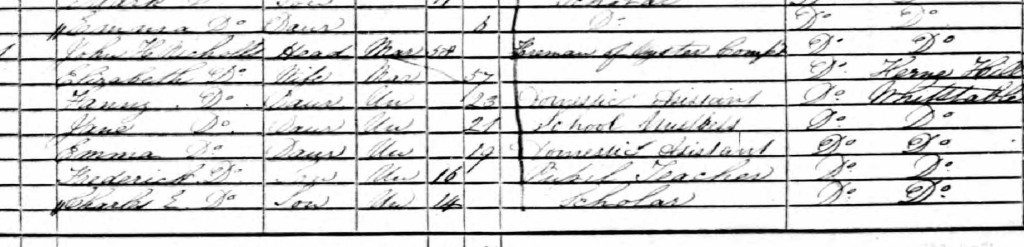 Emma Do Daur 6 Do Do Do
1 John H Head Mar 58 Foreman of Oyster Compy Do Do
Elizabeth Do Wife Mar 57 Do Herne Hill
Fanny Do Daur Un 23 Domestic Assistant Do Whitstable
Jane Do Daur Un 21 School Mistress Do Do
Emma Do Daur Un 19 Domestic Assistant Do Do
Frederick Do Son Un 16 Pupil Teacher Do Do
Charles E Do Son Un 14 Scholar Do Do